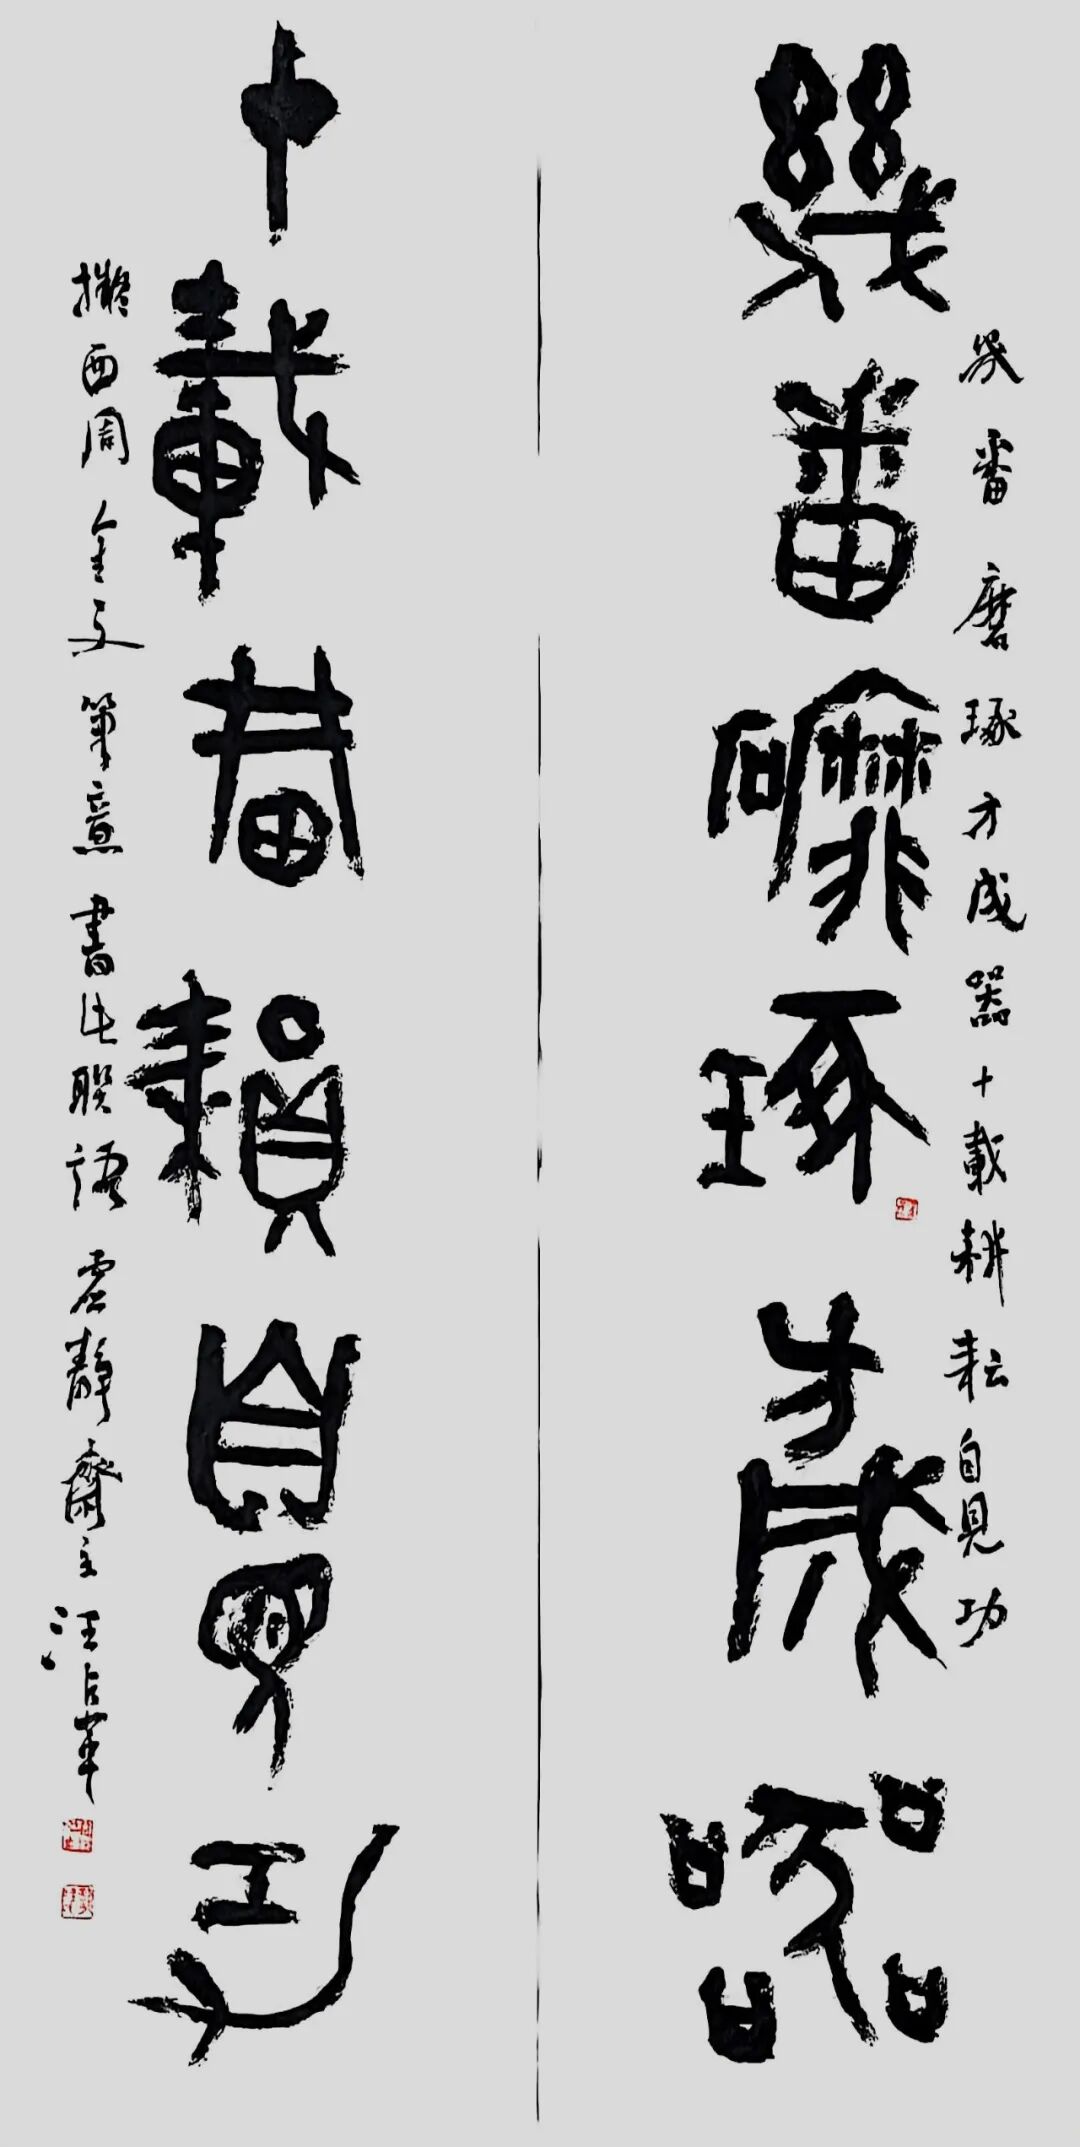 幾番磨琢才成器
幾番磨琢才成器十載耕耘自見功
十載耕耘自見功
擬西周金文筆意書此聯語虛靜齋主汪占軍